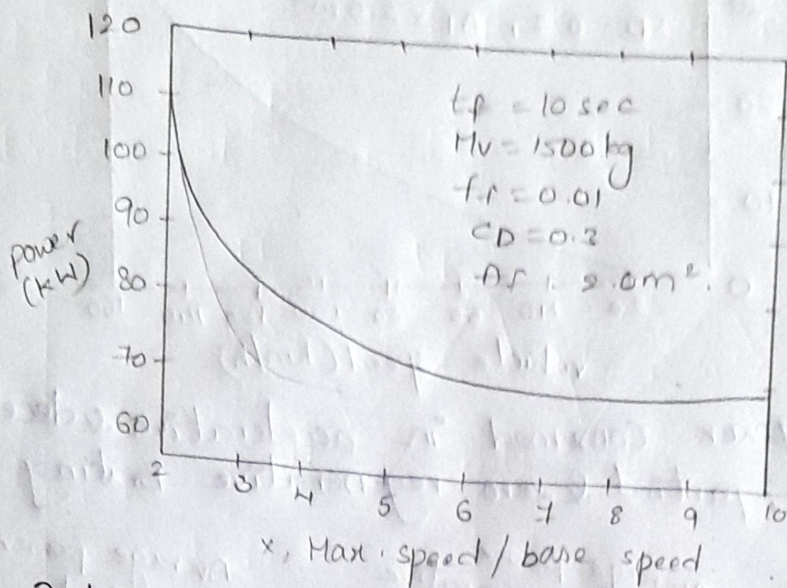 120
110
100
90
80
70
60
power
(KW)
tf = 10 sec
Mv = 1500 kg
fr = 0.01
CD = 0.3
Af = 2.0m².
2 3 4 5 6 7 8 9 10
x, Max. speed / base speed